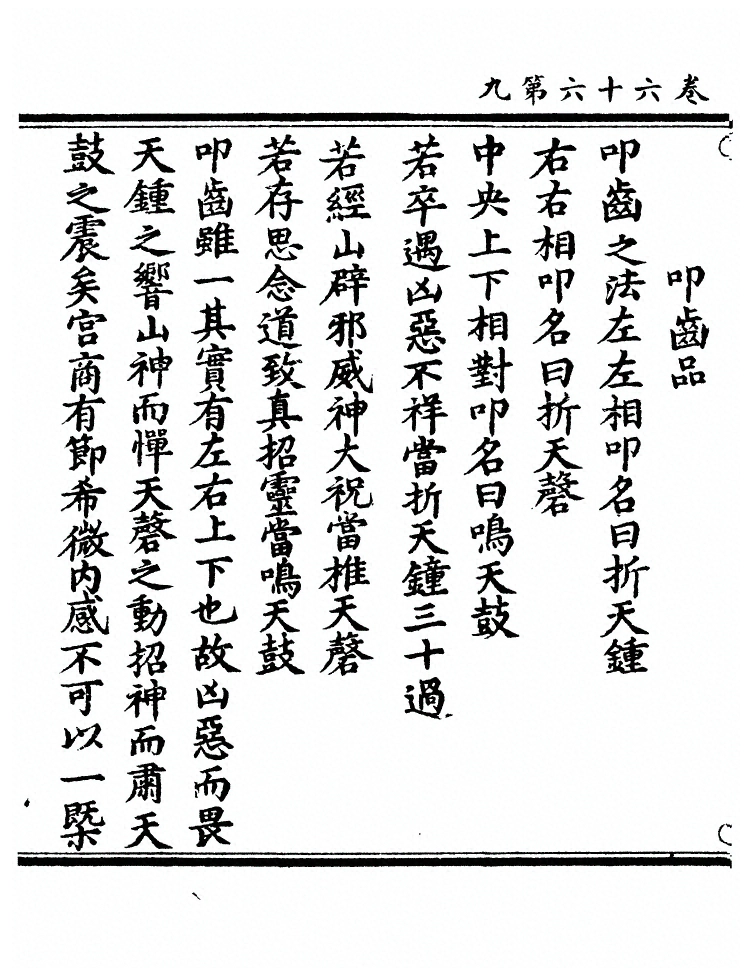 卷六十六第九
叩齒品
叩齒之法左左相叩名曰折天鍾
右右相叩名曰折天磬
中央上下相對叩名曰鳴天鼓
若卒遇凶惡不祥當折天鐘三十過
若經山辟邪威神大祝當椎天磬
若存思念道致真招靈當鳴天鼓
叩齒雖一其實有左右上下也故凶惡而畏
天鍾之響山神而憚天磬之動招神而肅天
鼓之震矣宮商有節希微內感不可以一槩